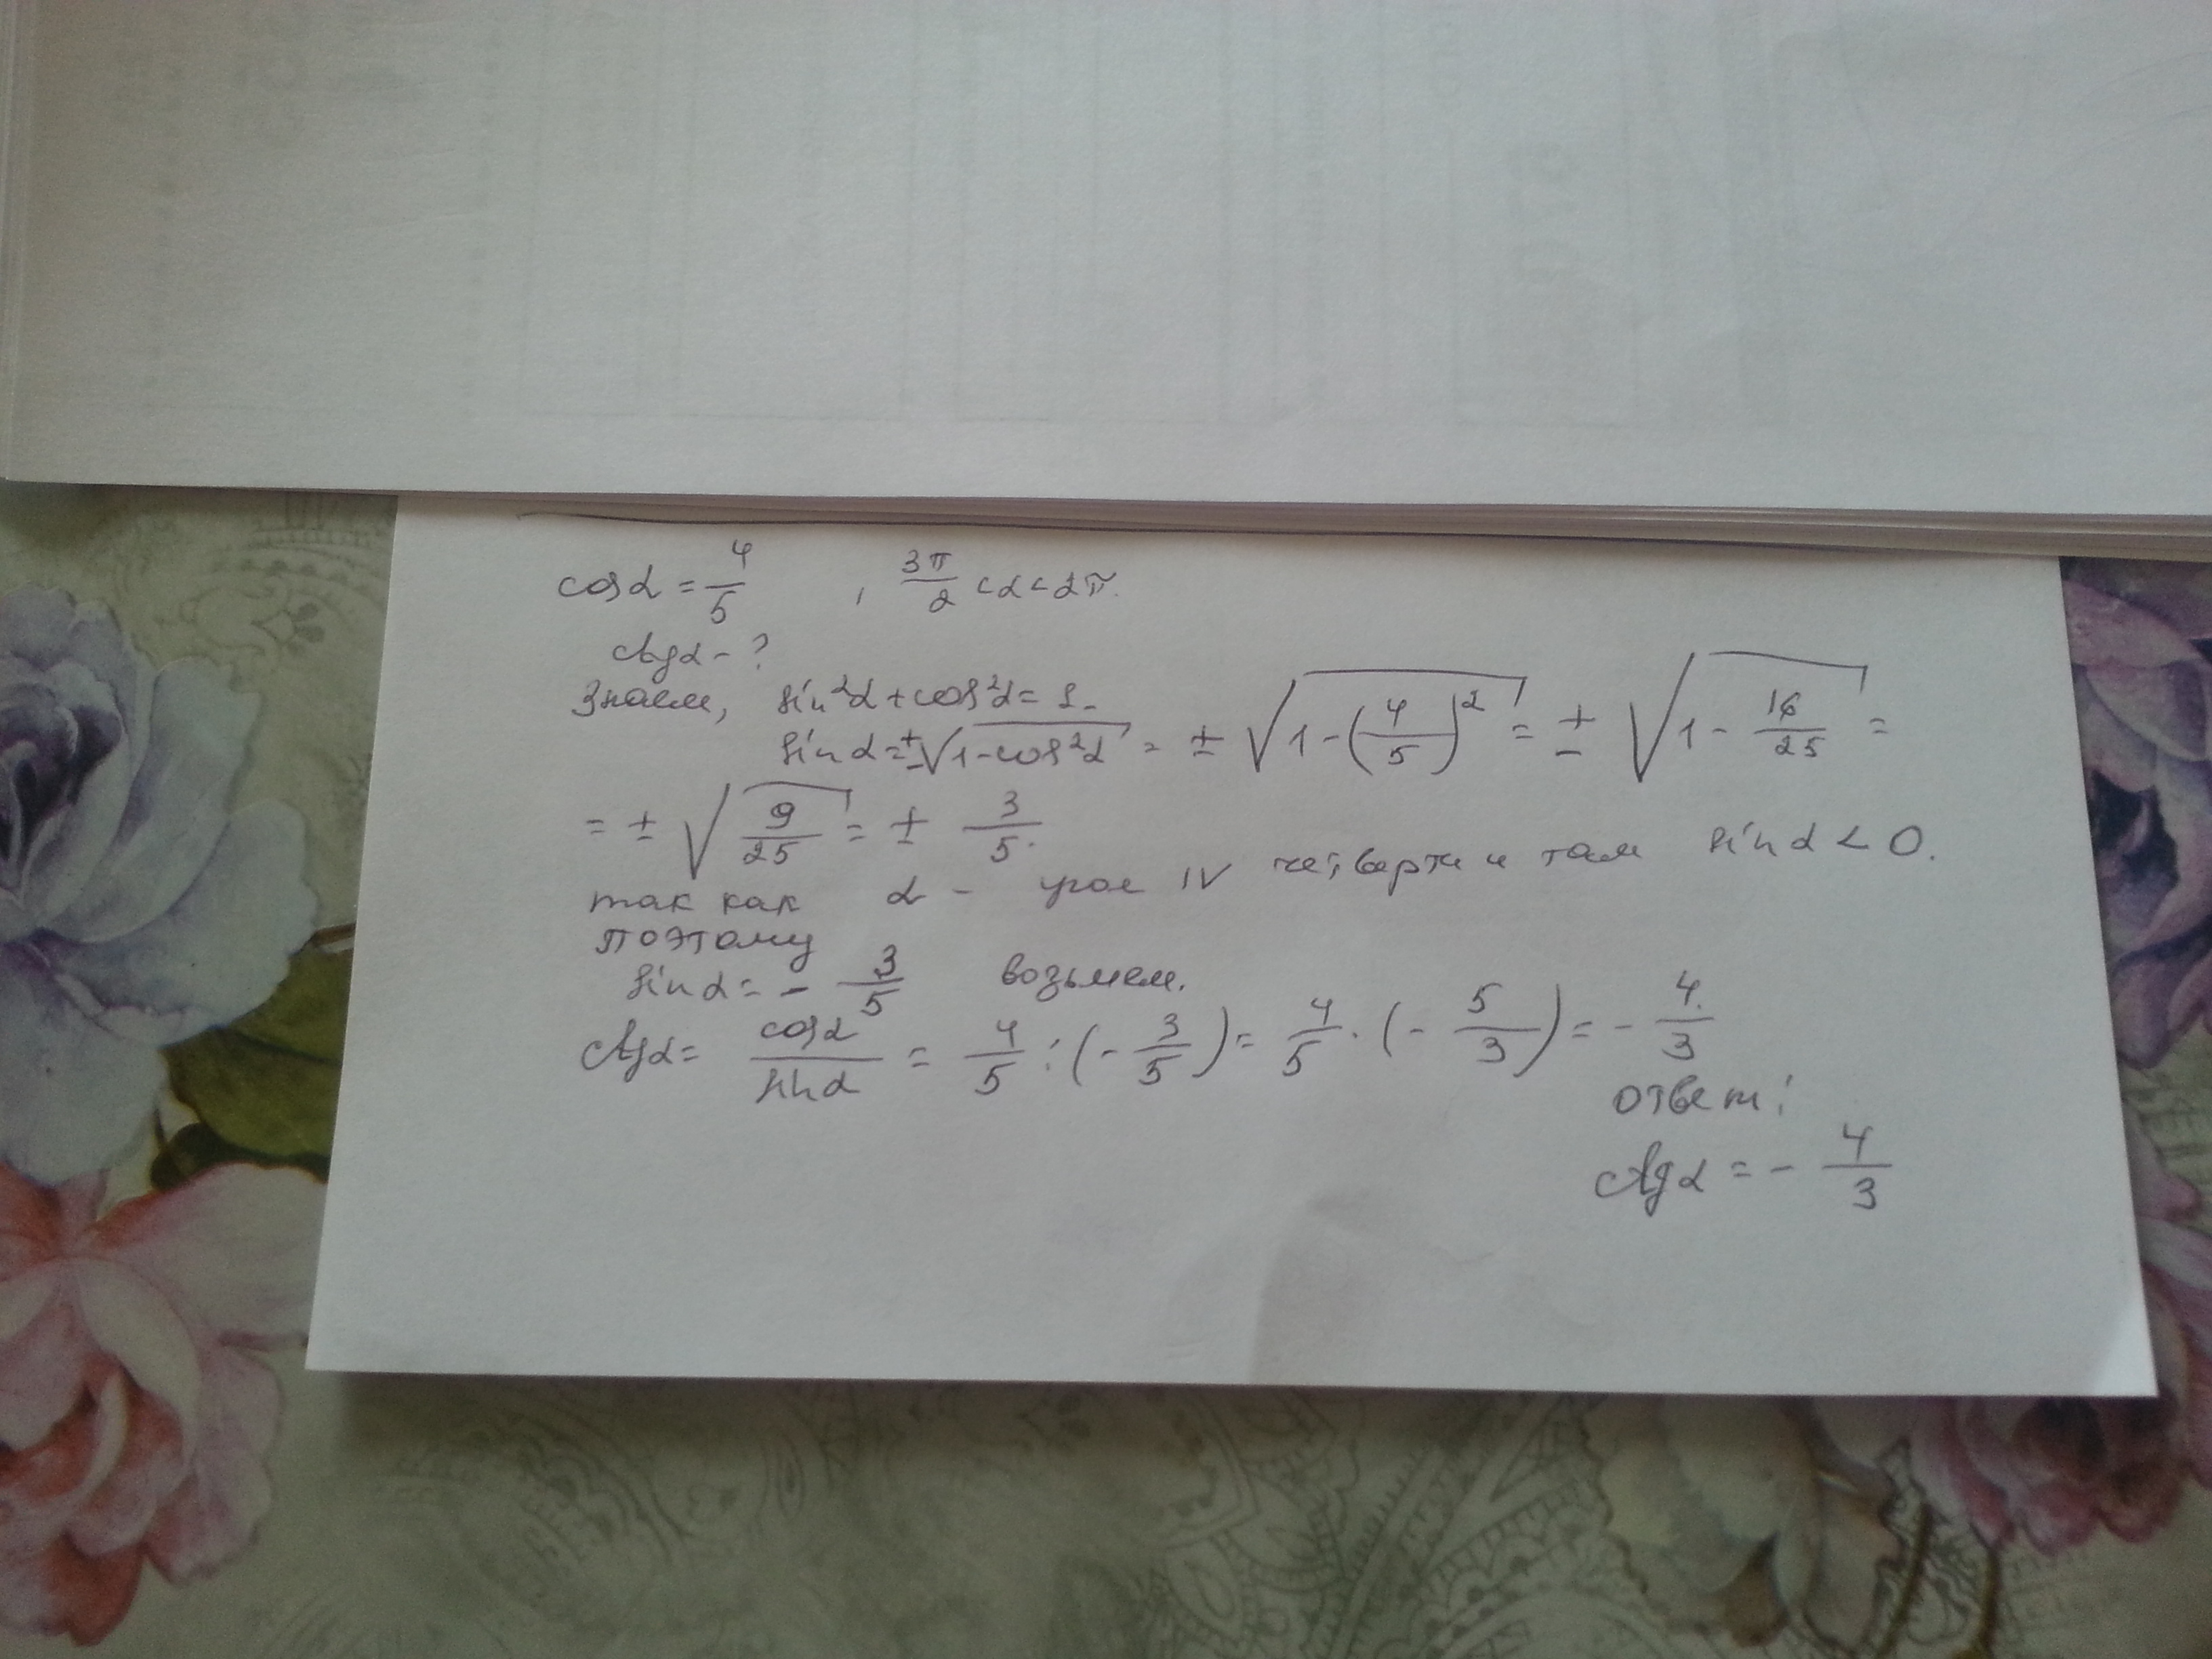 cos α = 4/5 , 3π/2 < α < 2π.
ctg α - ?
Знаем, sin²α + cos²α = 1.
sin α = ±√(1-cos²α) = ± √(1-(4/5)²) = ± √(1 - 16/25) =
= ± √(9/25) = ± 3/5.
так как α - угол IV четверти и там sin α < 0.
поэтому
sin α = - 3/5 возьмем.
ctg α = cos α/sin α = 4/5 : (- 3/5) = 4/5 · (- 5/3) = - 4/3
ответ:
ctg α = - 4/3